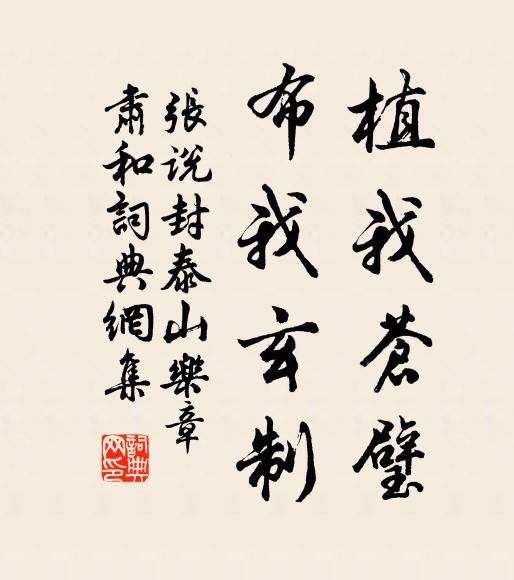 植我蒼璧
布我玄制
張說封泰山樂章
肅和詞典網集
詞典網印